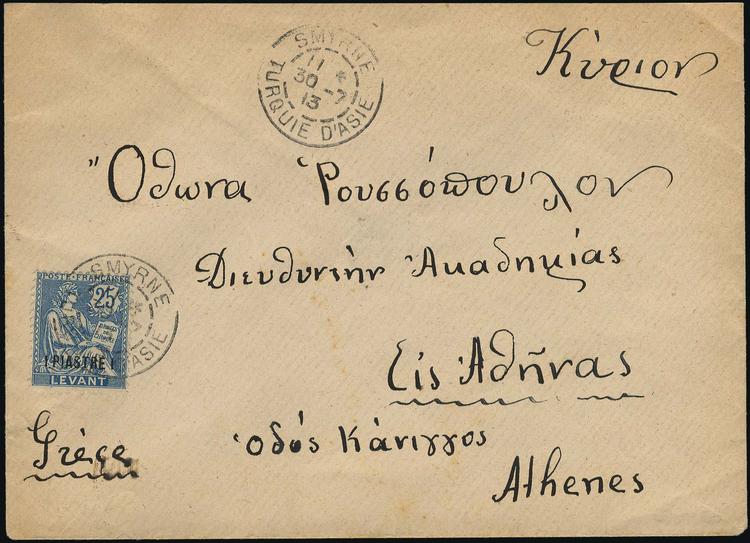 Κύριον
SMYRNE
11 *
30 -7
13
TURQUIE D'ASIE
Ὄθωνα Ῥουσσόπουλον
Διευθυντὴν Ἀκαδημίας
Εἰς Ἀθῆνας
ὁδός Κάνιγγος
Athenes
Grèce
POSTE FRANÇAISE
25
1 PIASTRE 1
LEVANT
SMYRNE
D'ASIE